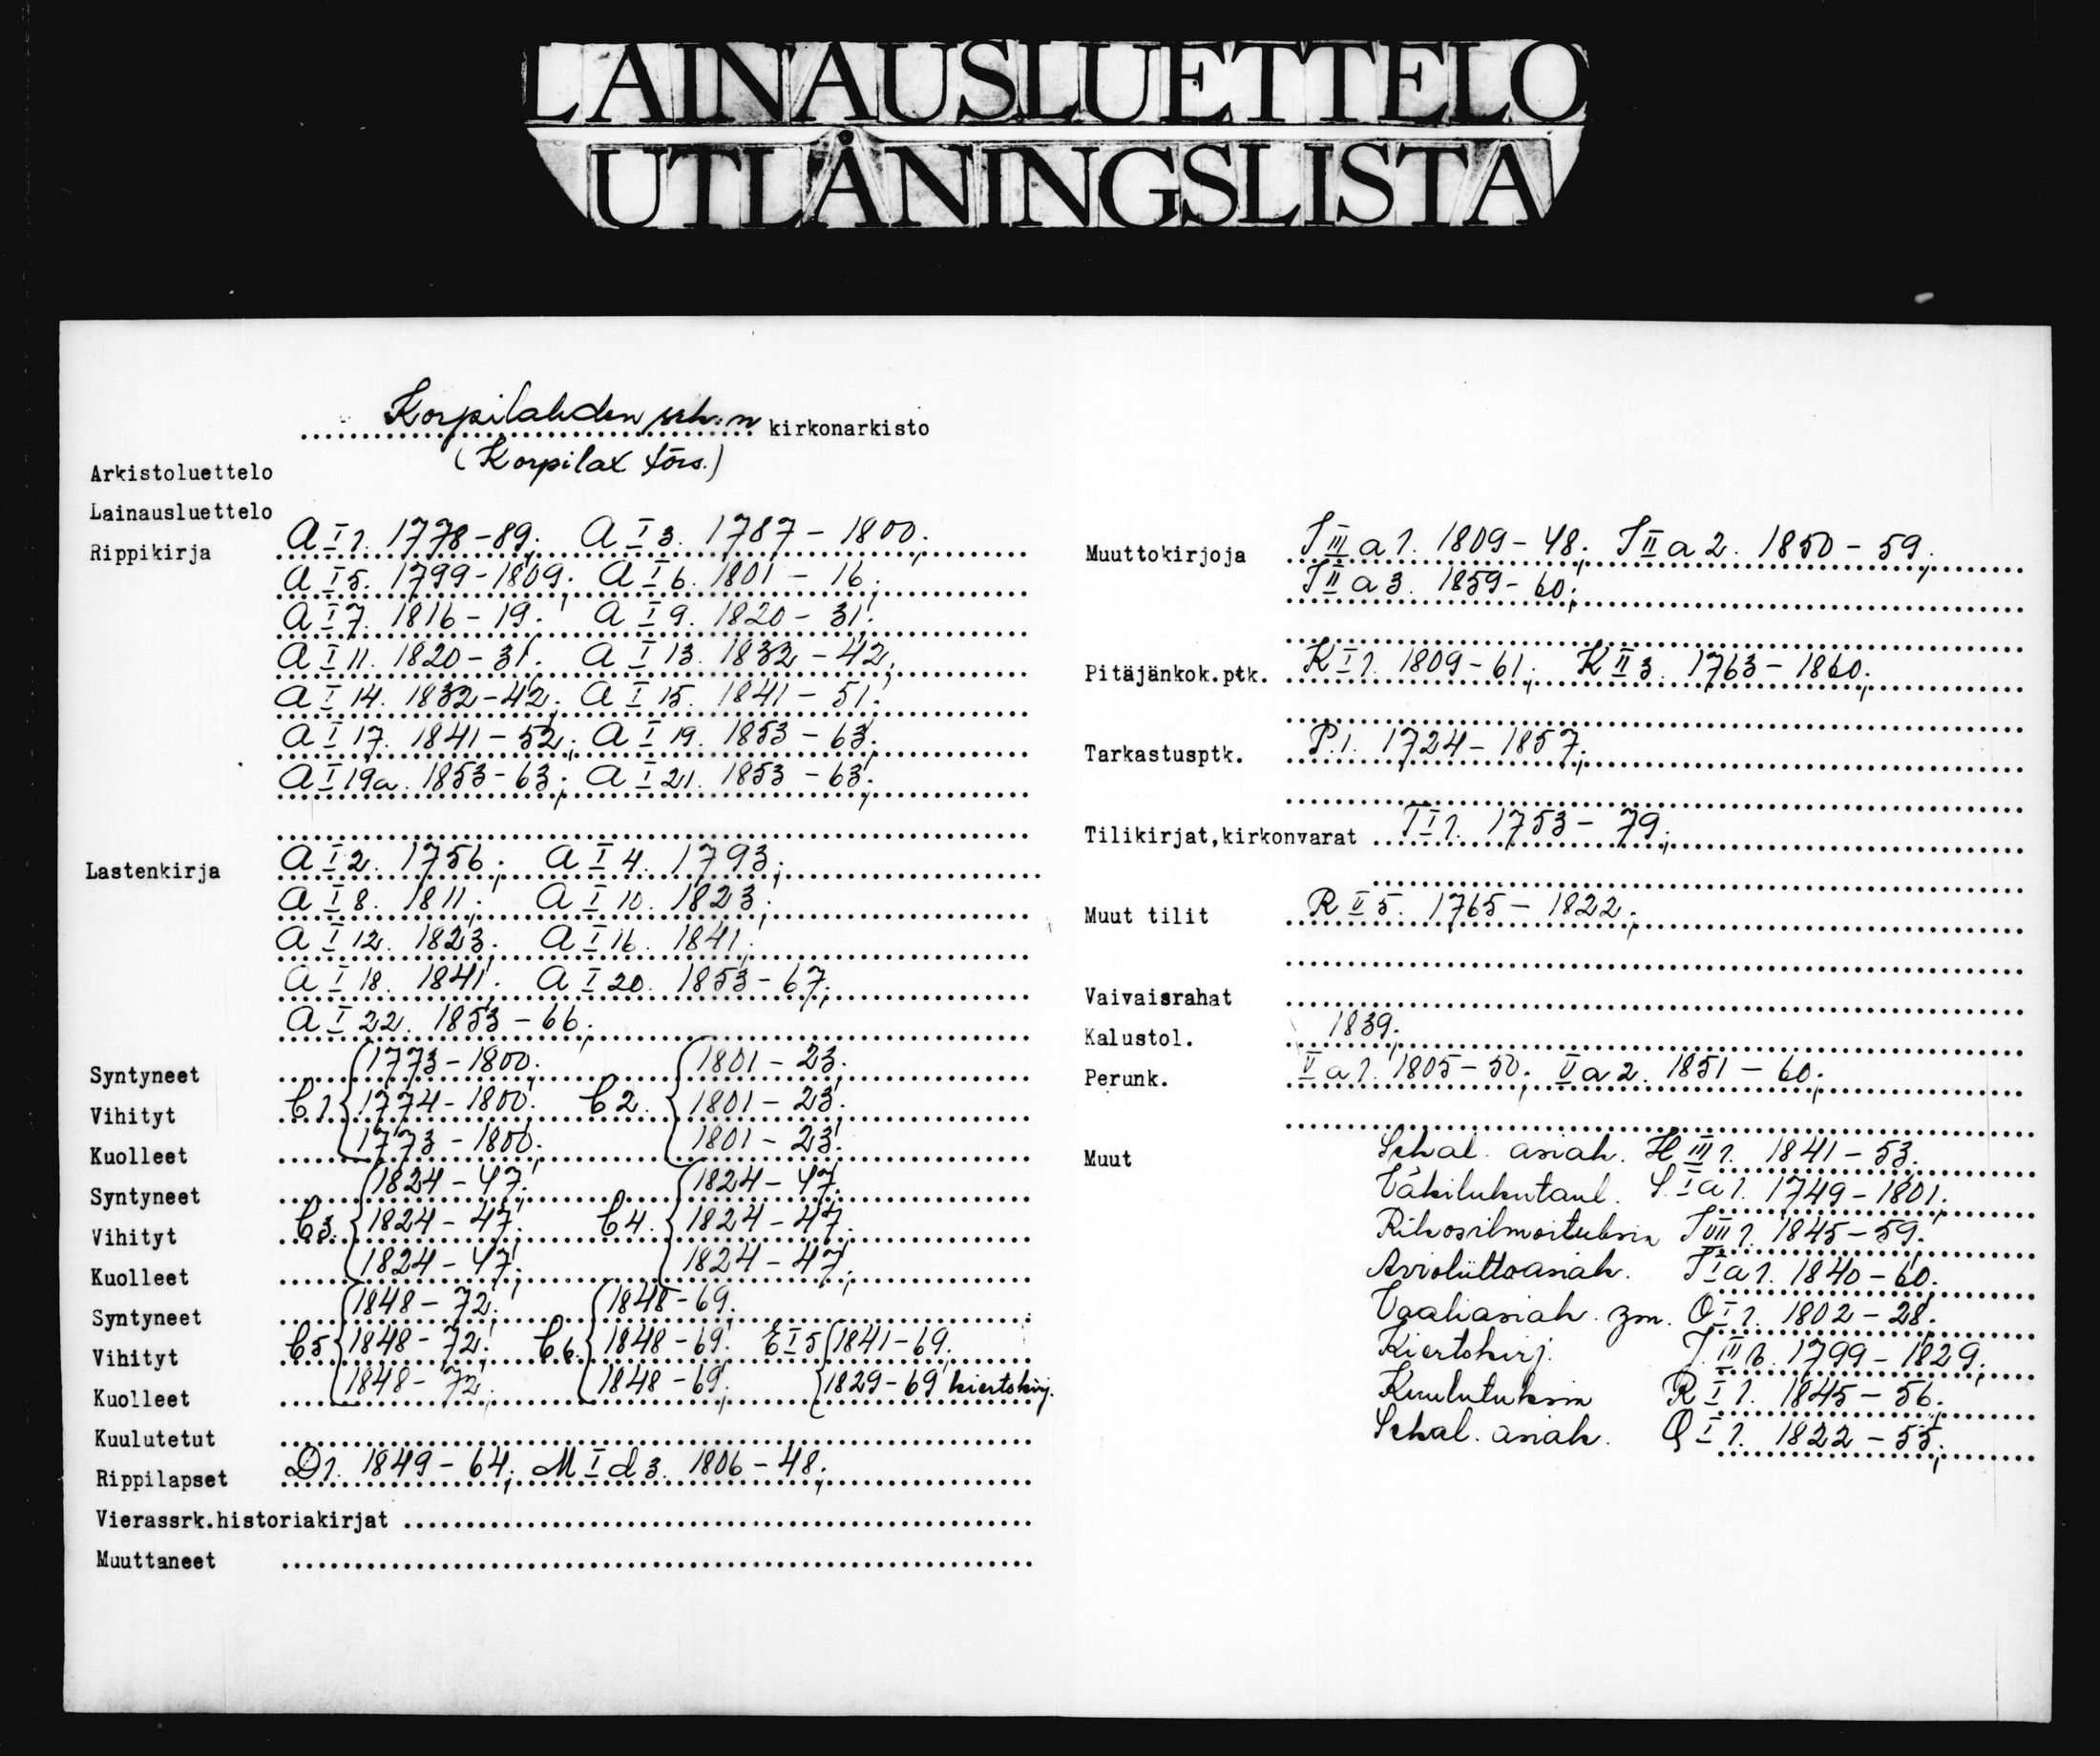 LAINAUSLUETTELO
UTLÅNINGSLISTA
Korpilahden srk:n kirkonarkisto
(Korpilax förs.)
Arkistoluettelo
Lainausluettelo
Rippikirja A I 1. 1778-89; A I 3. 1787-1800;
A I 5. 1799-1809; A I 6. 1801-16;
A I 7. 1816-19; A I 9. 1820-31;
A I 11. 1820-31; A I 13. 1832-42;
A I 14. 1832-42; A I 15. 1841-51;
A I 17. 1841-52; A I 19. 1853-63;
A I 19a. 1853-63; A I 21. 1853-63;
Lastenkirja A I 2. 1756; A I 4. 1793;
A I 8. 1811; A I 10. 1823;
A I 12. 1823; A I 16. 1841;
A I 18. 1841; A I 20. 1853-67;
A I 22. 1853-66;
Syntyneet 1773-1800; 1801-23;
Vihityt C 1. 1774-1800; C 2. 1801-23;
Kuolleet 1773-1800; 1801-23;
Syntyneet 1824-47; 1824-47;
Vihityt C 3. 1824-47; C 4. 1824-47;
Kuolleet 1824-47; 1824-47;
Syntyneet 1848-72; 1848-69;
Vihityt C 5 1848-72; C 6. 1848-69; E I 5 1841-69;
Kuolleet 1848-72; 1848-69; 1829-69 kiertokirj.
Kuulutetut
Rippilapset D 1. 1849-64; M I d 3. 1806-48;
Vierassrk.historiakirjat
Muuttaneet
Muuttokirjoja J III a 1. 1809-48; J II a 2. 1850-59;
J II a 3. 1859-60;
Pitäjänkok.ptk. K I 1. 1809-61; K II 3. 1763-1860;
Tarkastusptk. P.1. 1724-1857;
Tilikirjat,kirkonvarat T I 1. 1753-79;
Muut tilit R II 5. 1765-1822;
Vaivaisrahat
Kalustol. 1839;
Perunk. V a 1. 1805-50; V a 2. 1851-60;
Muut Sekal. asiak. H III 1. 1841-53;
Väkilukutaul. I a 1. 1749-1801;
Rikosilmoituksia 1845-59;
Avioliittoasiak. I a 1. 1840-60;
Vaaliasiak. ym. O I 1. 1802-28;
Kiertokirj. 1799-1829;
Kuulutuksia R I 1. 1845-56;
Sekal. asiak. Q I 1. 1822-55;